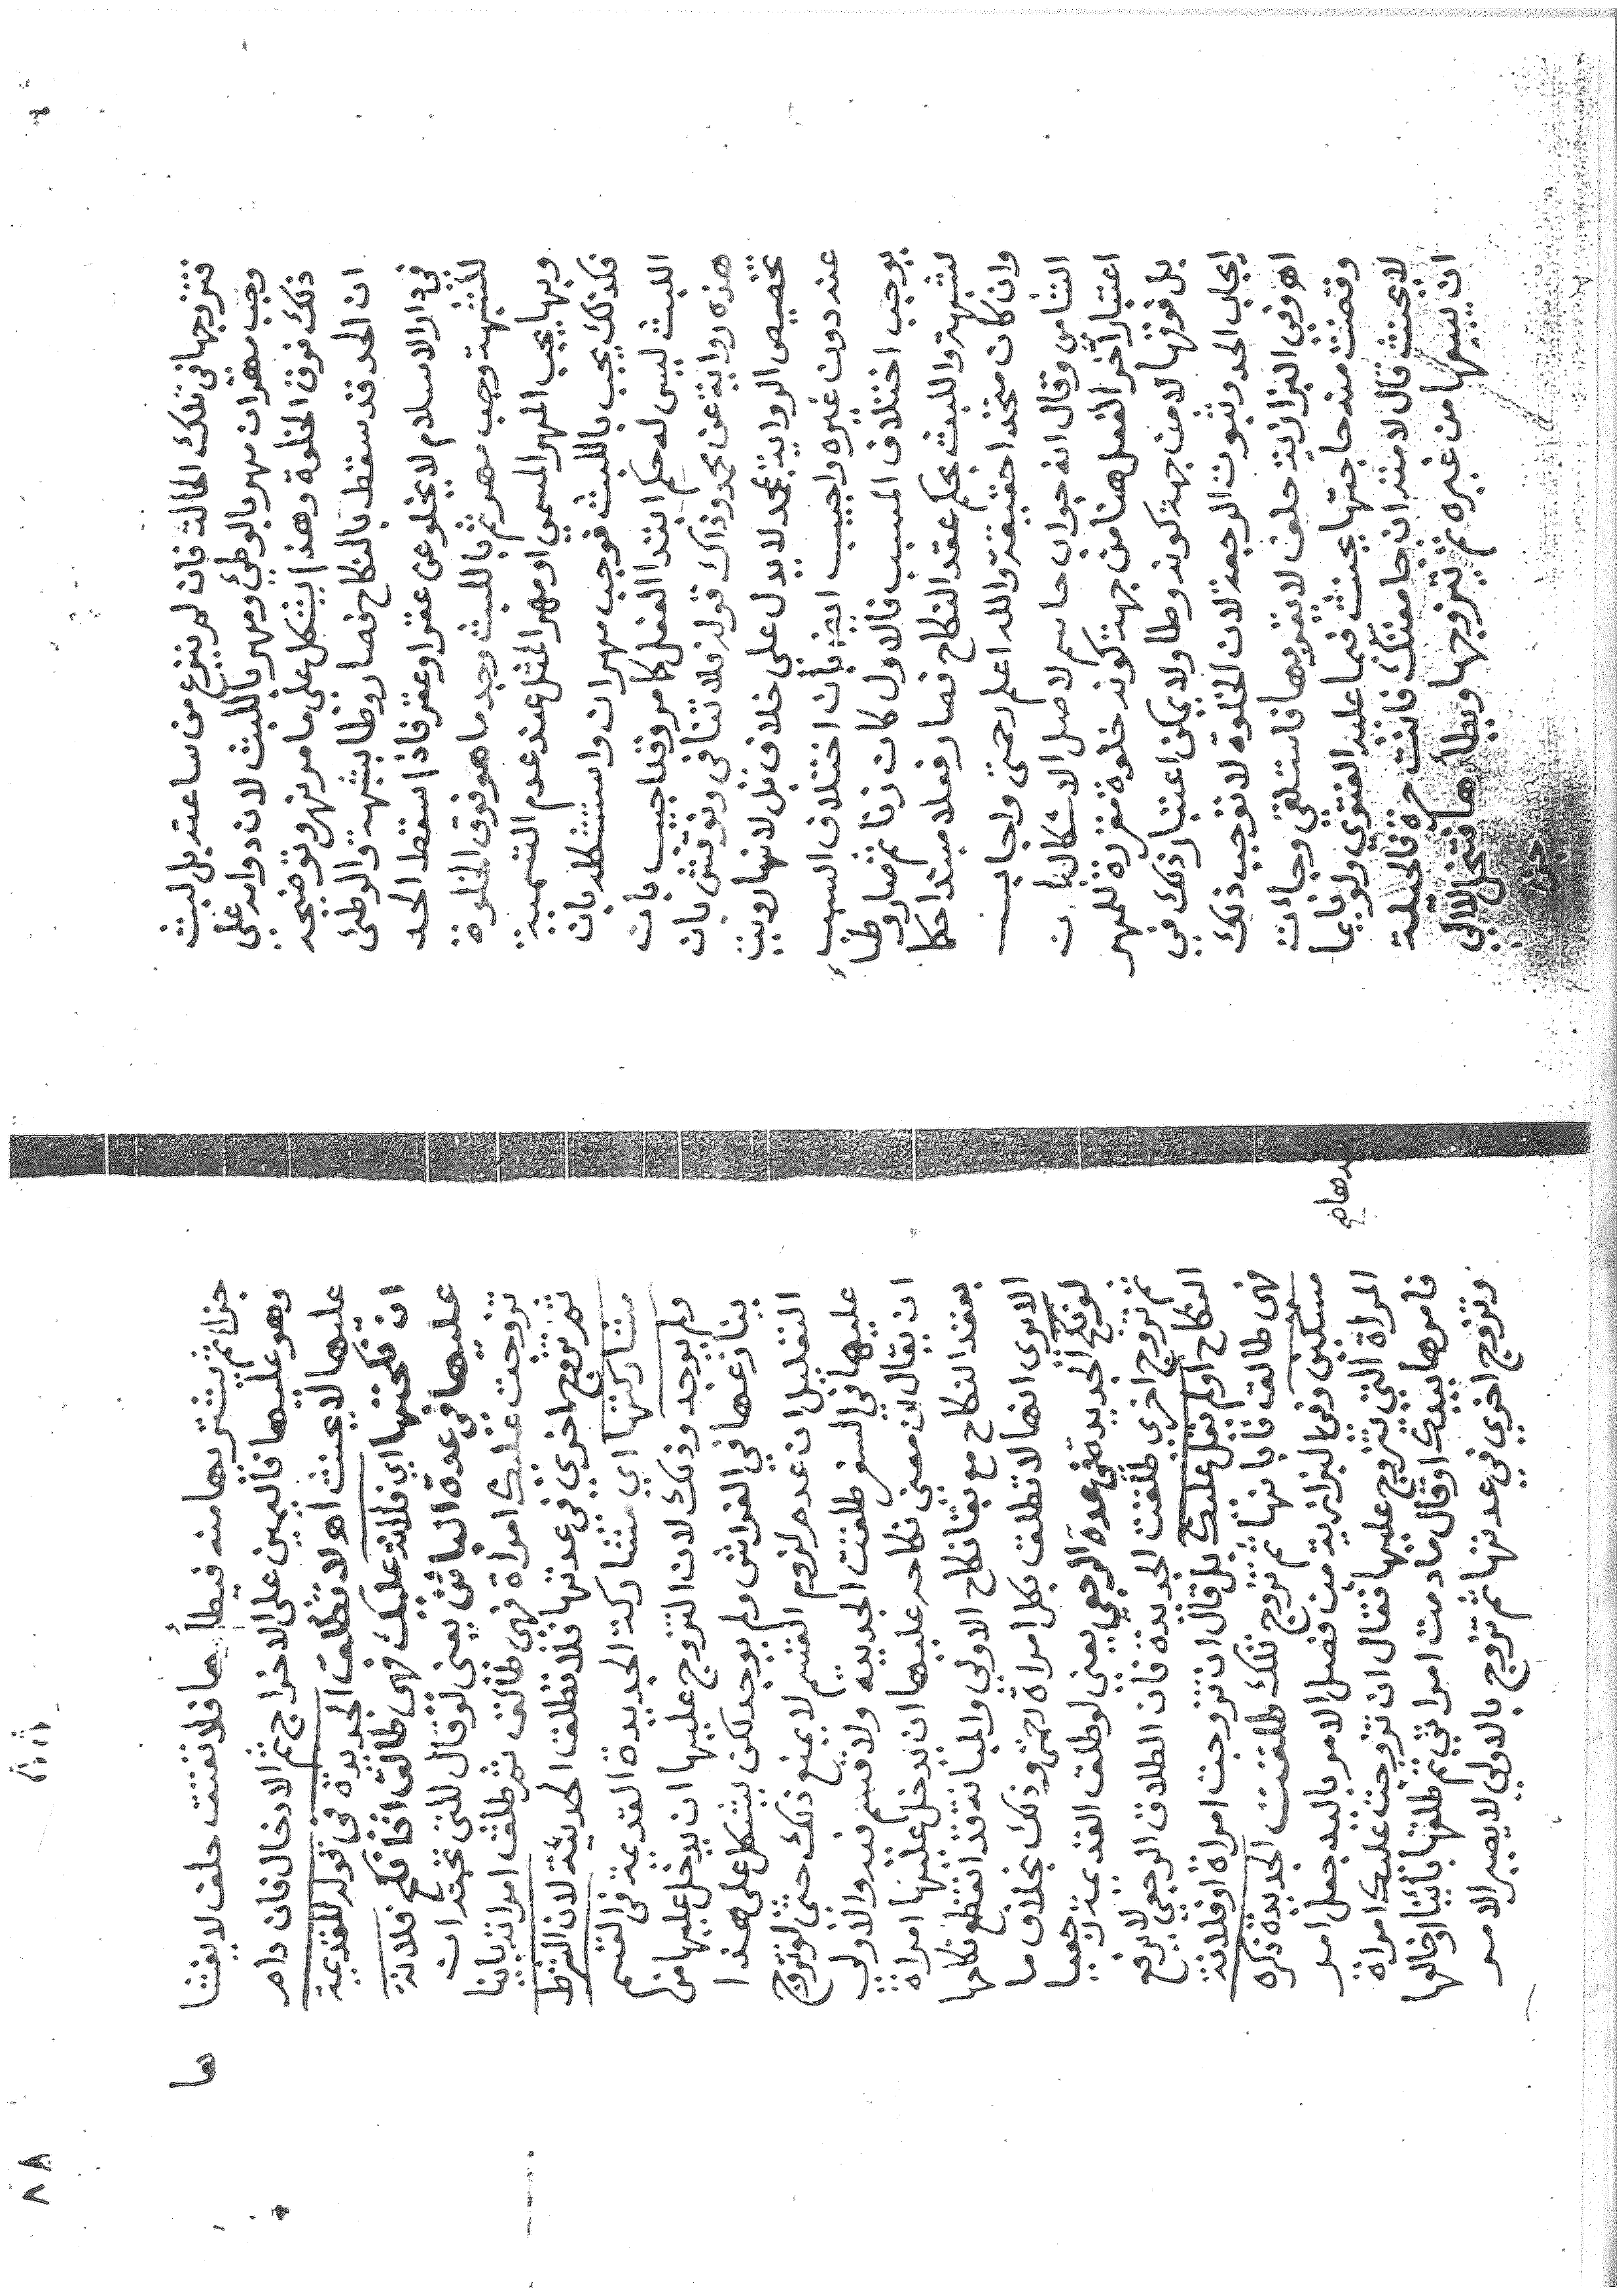 فتزوجها في تلك الحالة فان لم ينزع من ساعته بل لبث
وجب مهران مهر بالوطئ ومهر باللبث لان دوامه على
ذلك فوق الخلوة وهذا يشكل على ما مر نهر وتوضيحه
ان الحد قد سقط بالنكاح فصار وطا بشبهة والوطئ
في دار الاسلام لا يخلو عن عقر او عقر فاذا سقط الحد
للشبهة وجب مهر ثم باللبث وجد ما هو فوق الخلوة
وبها يجب المهر المسمى او مهر المثل عند عدم التسمية
فكذلك يجب باللبث فوجب مهران واستشكله بان
اللبث ليس له حكم ابتدا الفعل كما مر وقد اجيب بان
هذه رواية عن محمد وذاك قوله فلا تنافي ونوقش بان
تخصيص الرواية بمحمد لا يدل على خلاف بل لانها رويت
عنه دون غيره واجيب ايضا بأن اختلاف السبب
يوجب اختلاف المسبب فالاول كان زنا ثم صار وطأ
لشبهة واللبث بحكم عقد النكاح فصار فعلا مبتدا حكما
وان كان متحدا حقيقة والله اعلم رحمتي واجاب
الشامي وقال انه جواب حاسم لاصل الاشكال بان
اعتبار آخر الفعل هنا من جهة كونه خلوة مقررة للمهر
بل فوقها لا من جهة كونه وطا ولا يمكن اعتبار ذلك في
ايجاب الحد وثبوت الرجعة لان الخلوة لا توجب ذلك
اهـ وفي البزازية حلف لا يقربها فاستلقى وجات
وقضت منه حاجتها يحنث فيما عليه الفتوى ولو نايما
لا يحنث قال لامته ان جامعتك فانت حرة فالحيلة
ان يبيعها من غيره ثم يتزوجها ويطاها فتنحل لا الى
جزا
جزا ثم يشتريها منه فيطأها فلا تعتق حلف لا يفتا
وهو عليها فاليمين على الاخراج ثم الادخال فان دام
عليها لا يحنث اهـ لا تطلق الجديدة في قوله للقديمة
ان نكحتها اي فلانة عليك فهي طالق اذا نكح فلانة
عليها في عدة البائن يعني لو قال للتي تحته ان
تزوجت عليك امراة فهي طالق ثم طلق امراته باينا
ثم تزوج اخرى في عدتها فلا تطلق الحديثة لان الشرط
مشاركتها اي مشاركة الجديدة القديمة في القسم
ولم يوجد وذلك لان التزوج عليها ان يدخل عليها من
ينازعها في الفراش ولم يوجد لكن يشكل على هذا
التعليل ان عدم لزوم القسم لا يمنع ذلك حتى لو تزوج
عليها في السفر طلقت الجديدة ولا قسم فيه والاولى
ان يقال لان معنى نكاحه عليها ان يدخل عليها امراة
بعقد النكاح مع بقا نكاح الاولى والمبانة قد انقطع نكاحها
الا يرى انها لا تطلق بكل امراة رحمتي وذلك بخلاف ما
لو نكح الجديدة في عدة الرجعي يعني لو طلق القديمة رجعيا
ثم تزوج اخرى طلقت الجديدة فان الطلاق الرجعي لا يرفع
النكاح او لم يقل عليك بل قال ان تزوجت امراة او فلانة
فهي طالق فابانها ثم تزوج تلك طلقت الجديدة ذكره
مسكين وفي البزازية من فصل الامر باليد جعل امر
المراة التي يتزوج عليها فقال ان تزوجت عليك امراة
فامرها بيدك او قال ما دمت امراتي ثم طلقها باينا او خالعها
وتزوج اخرى في عدتها ثم تزوج بالاولى لا يصير الامر
ها
٨٨